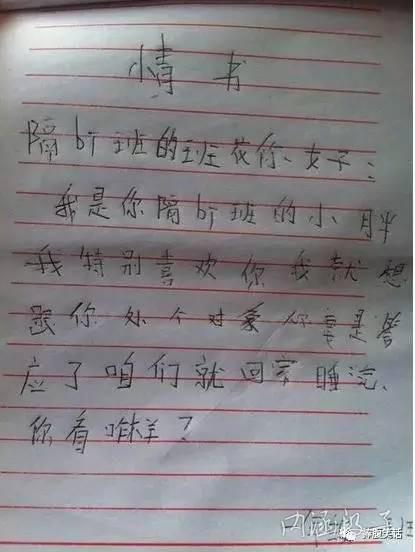 情书
隔bi班的班花你、好:
我是你隔bi班的小、胖
我特别喜欢你我就想
跟你处个对象你要是答
应了咱们就回家睡
你看咋样?
内涵